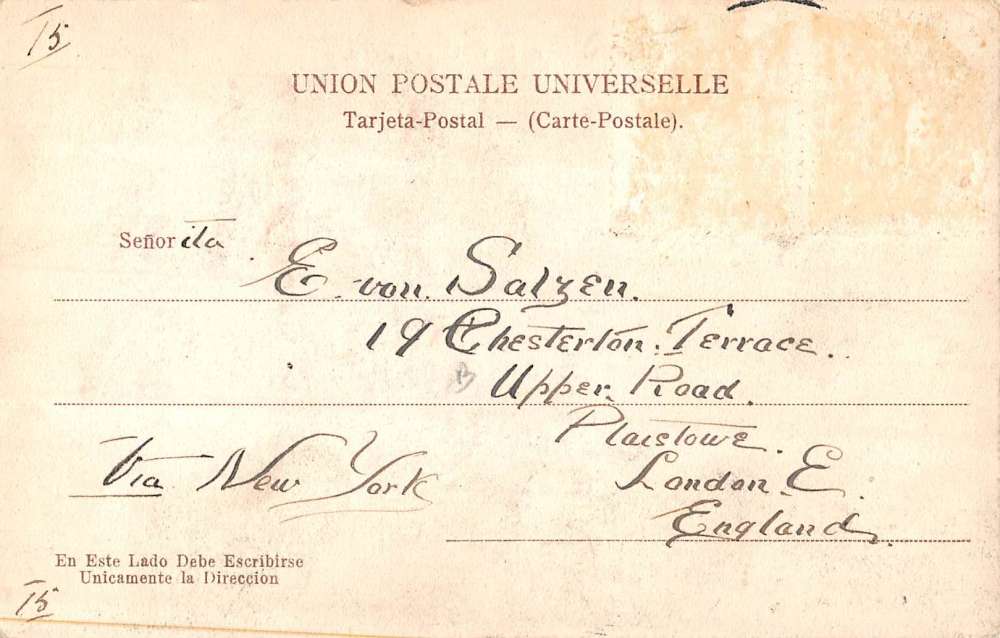 T5
UNION POSTALE UNIVERSELLE
Tarjeta-Postal — (Carte-Postale).
Señorita
E. von. Salzen.
19 Chesterton. Terrace.
B
Upper. Road.
Plaistowe.
Via New York
London. E.
England.
En Este Lado Debe Escribirse
Unicamente la Direccion
T5